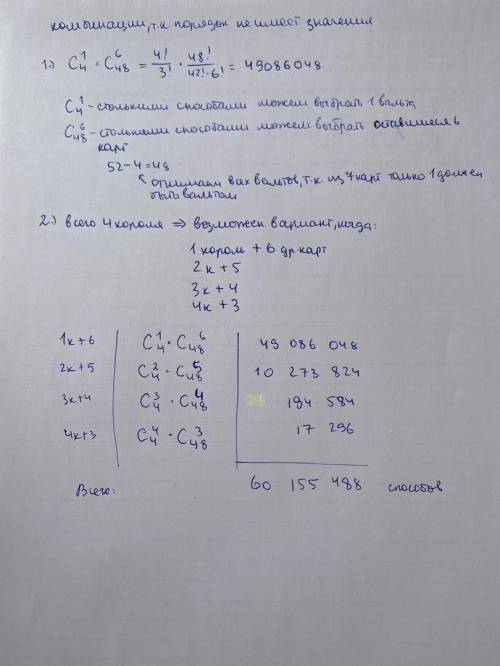 комбинации, т.к порядок не имеет значения
1.) C₄¹ · C₄₈⁶ = 4!/3! · 48!/42!·6! = 49086048
C₄¹ - столькими способами можем выбрать 1 вальта
C₄₈⁶ - столькими способами можем выбрать оставшиеся 6
карт
52-4=48
отнимаем всех вальтов, т.к из 7 карт только 1 должен
быть вальтом
2.) всего 4 короля ⇒ возможен вариант, когда:
1 король + 6 др. карт
2к + 5
3к + 4
4к + 3
1к+6 C₄¹ · C₄₈⁶ 49 086 048
2к+5 C₄² · C₄₈⁵ 10 273 824
3к+4 C₄³ · C₄₈⁴ 194 584
4к+3 C₄⁴ · C₄₈³ 17 296
Всего: 60 155 488 способов